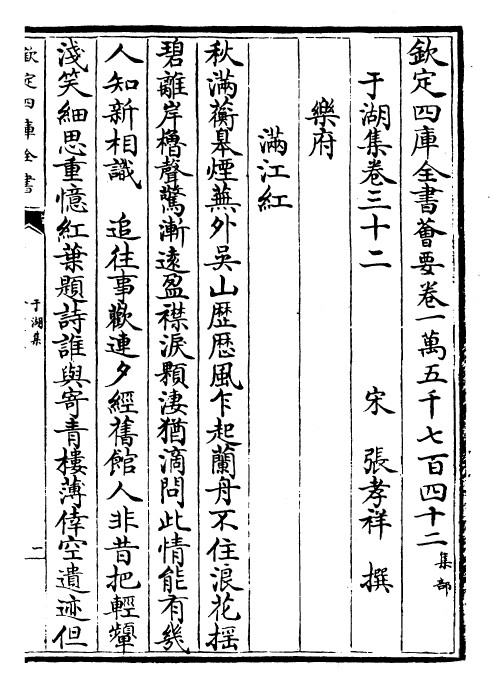 欽定四庫全書薈要卷一萬五千七百四十二 集部
于湖集卷三十二
宋 張孝祥 撰
樂府
滿江紅
秋滿蘅臯煙蕪外吳山歴歴風乍起蘭舟不住浪花揺
碧離岸櫓聲驚漸逺盈襟淚顆淒猶滴問此情能有幾
人知新相識 追往事歡連夕經舊館人非昔把輕顰
淺笑細思重憶紅葉題詩誰與寄青樓薄倖空遺迹但
欽定四庫全書
于湖集